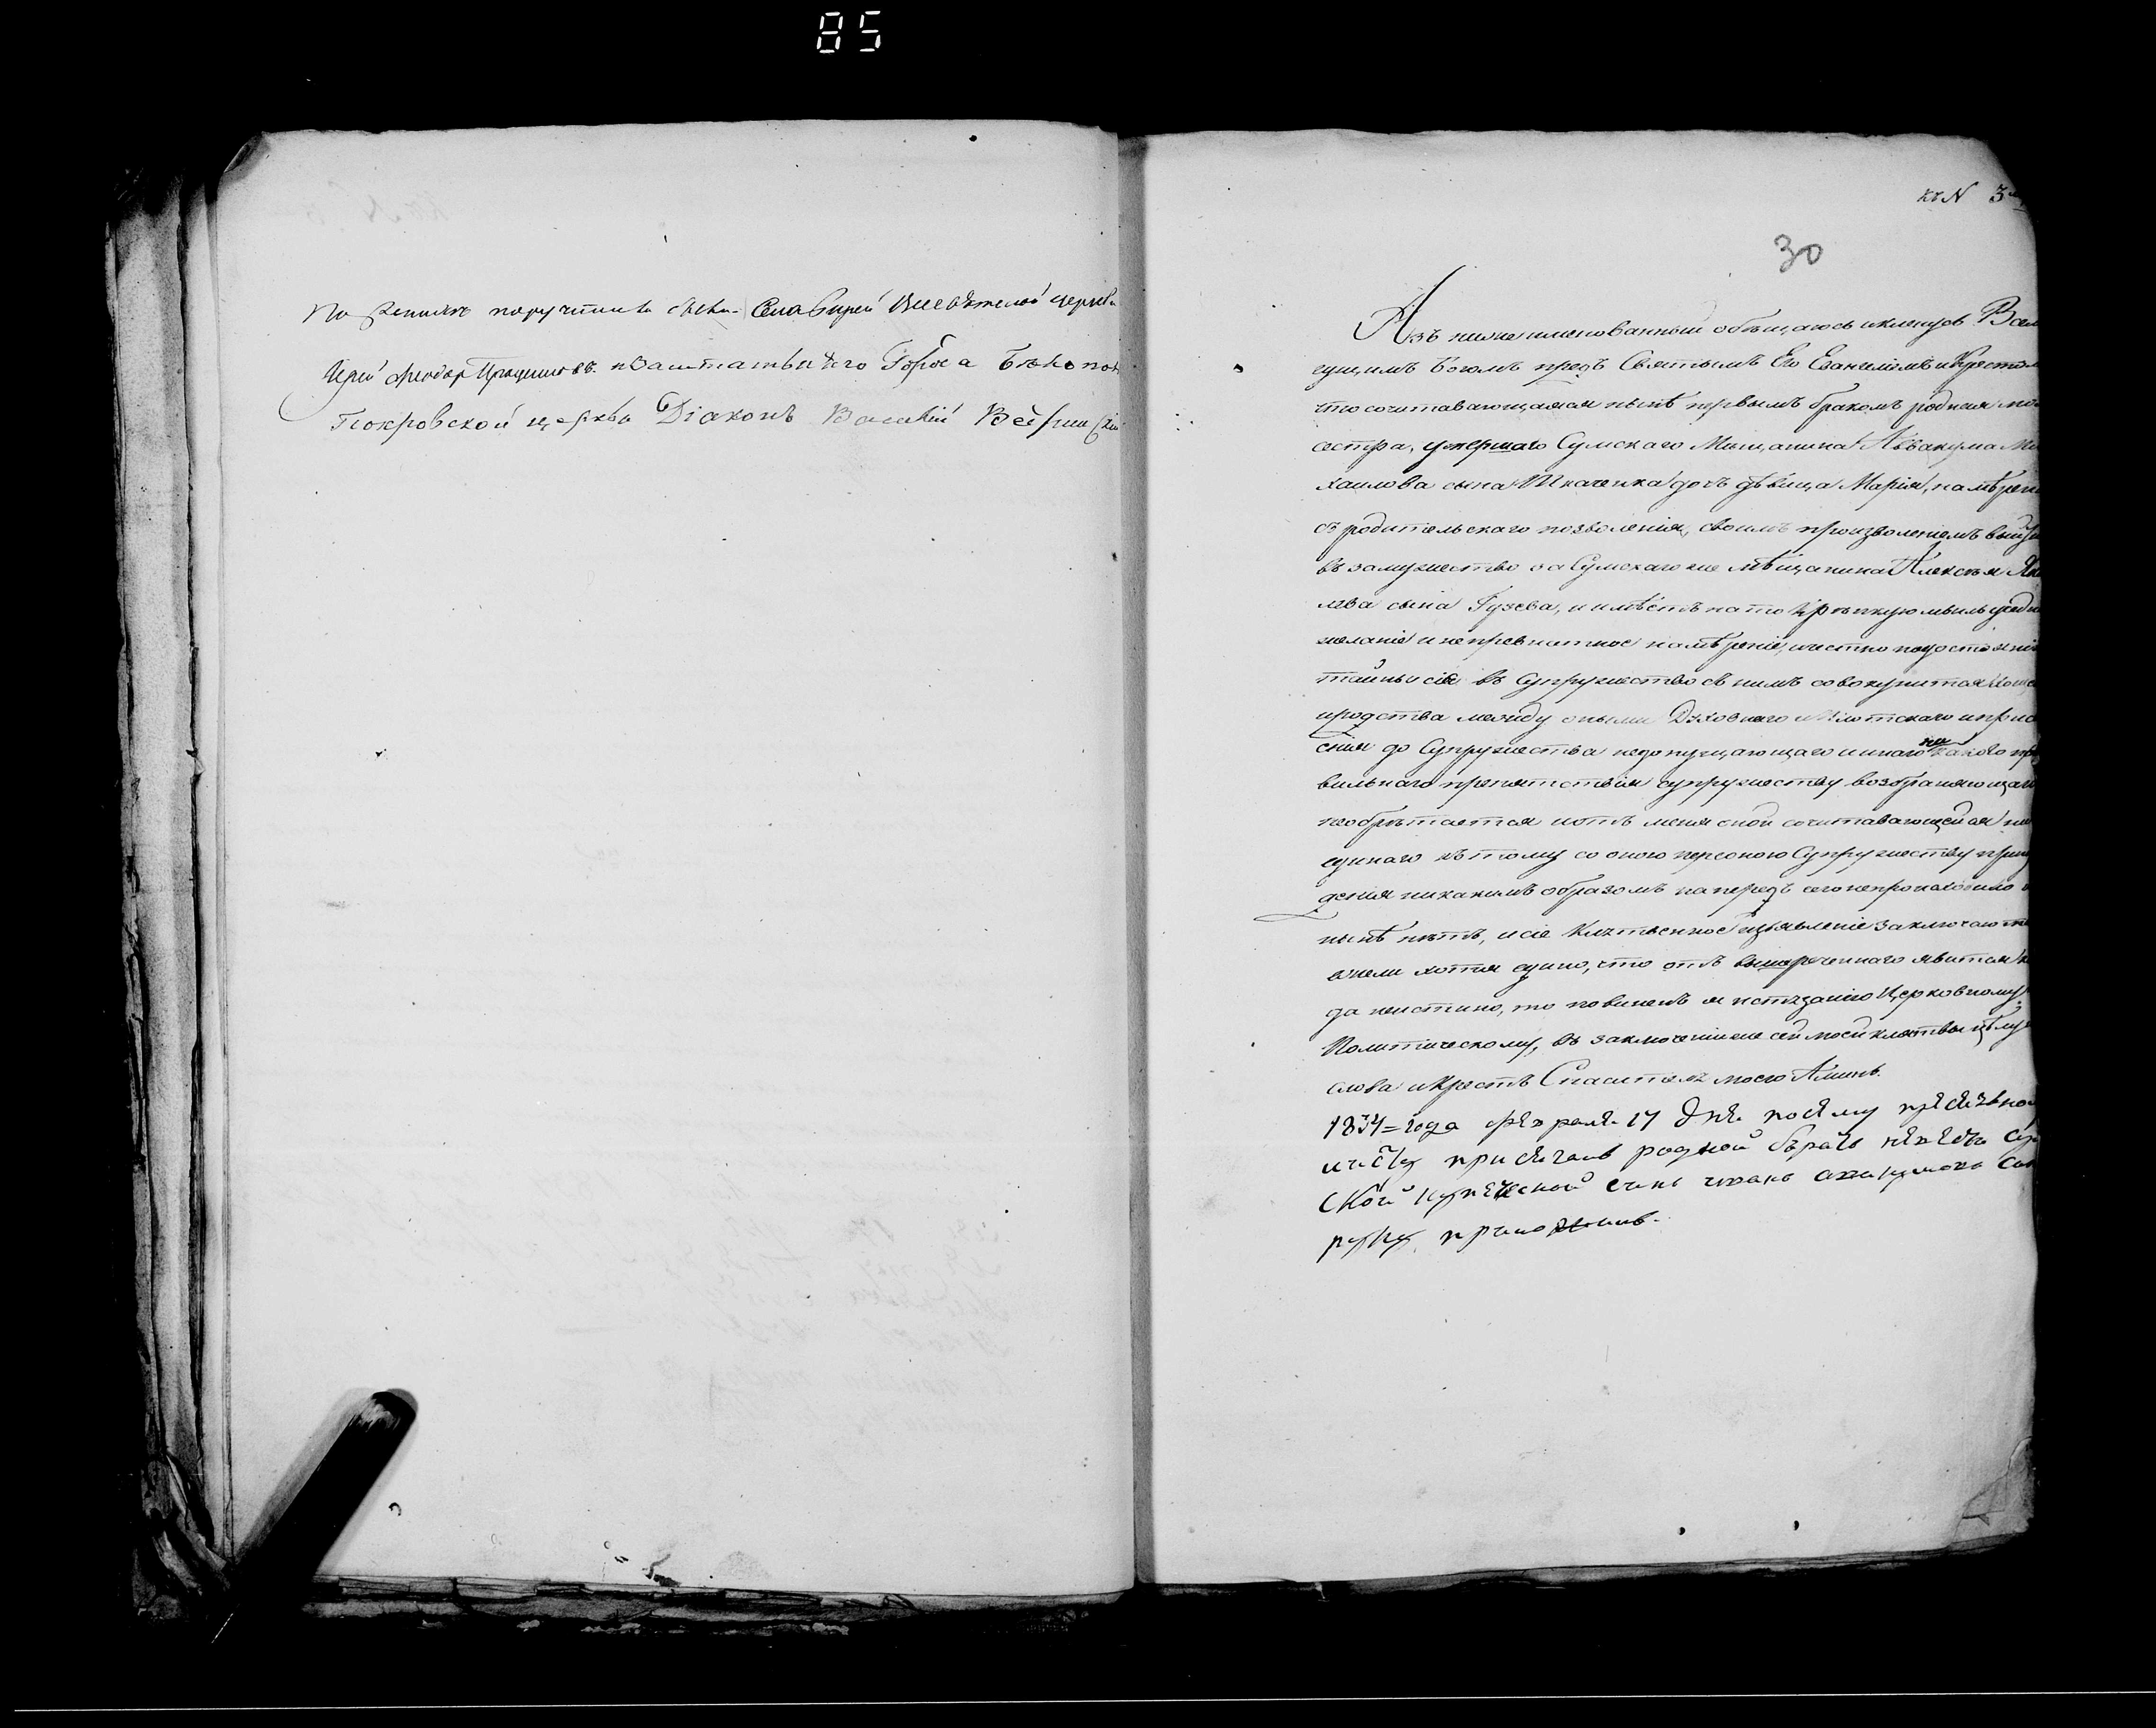 85
По женихе поручители села Сирей церкви
Іерей Феодор изаштатнаго Города
Покровской церкви Діаконъ Василій
къ N 3
30
Азъ ниже именованный обѣщаюсь и кленусь Всем
сущимъ Богомъ предъ Святымъ Его Евангеліемъ и Крестом
что сочитавающаяся нынѣ первымъ бракомъ родная мо
сестра, умершаго Сумскаго Мещанина Аввакума Ми
хаилова сына Ткаченка дочь дѣвица Марія, намѣрен
съ родительскаго позволенія, своимъ произволеніемъ выйд
въ замужество за Сумскаго же мѣщанина Алексея Яко
лева сына Гузева, и имѣетъ на то крѣпкую мысль усерд
желаніе и непревратное намѣреніе, и честно по достоянію
тайны сія въ супружество съ нимъ совокупитися
и родства между оными Духовнаго и Плотскаго и прис
енія до Супружества недопущающаго и инаго никакого пра
вильнаго препятствія супружеству возбраняющаго
необрѣтается и отъ меня оной сочитавающейся ни
единаго къ тому со оною персоною Супружеству принуж
денія никакимъ образомъ напередъ сего непроисходило и
нынѣ нѣтъ, и сіе Клятвенное изъявленіе заключаю
ежели хотя едино, что отъ вышереченнаго явится
да неистино, то повиненъ я истязанію Церковному и
Политическому, въ заключеніи же сей моей клятвы цѣлую
слова и Крестъ Спасителя моего Аминь.
1834= года февраля 17 дня посему присяжно
листу присягалъ родной братъ
ской купеческой сынъ иванъ авакумовъ
руку приложилъ.